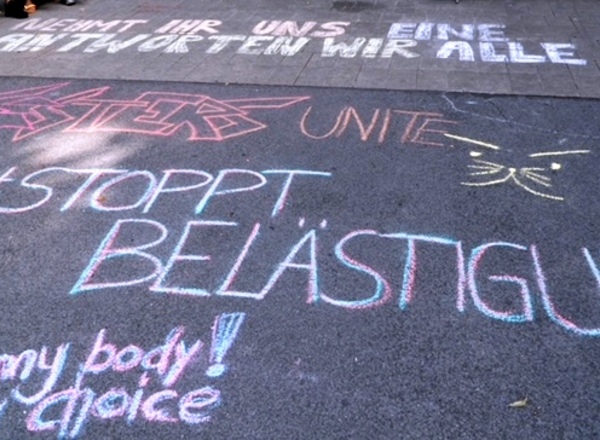 NEHMT IHR UNS EINE
ANTWORTEN WIR ALLE
SISTERS UNITE
STOPPT
BELÄSTIGU
my body!
choice